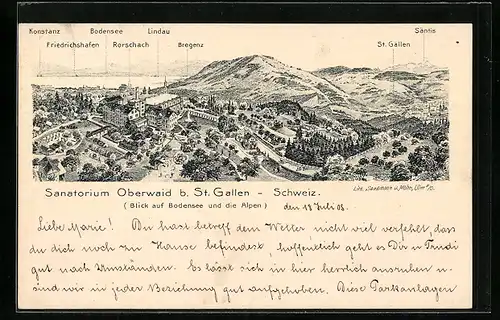 Konstanz Bodensee Lindau Säntis
Friedrichshafen Rorschach Bregenz St. Gallen
Sanatorium Oberwaid b. St. Gallen - Schweiz.
(Blick auf Bodensee und die Alpen) den 18 Juli 08.
Liebe Marie! Du hast betreff dem Wetter nicht viel verfehlt, dass
du dich noch zu Hause befindest, hoffentlich geht es Dir u. Trudi
gut nach Umständen. Es lässt sich in hier herrlich ausruhen u.
sind wir in jeder Beziehung gut aufgehoben. Diese Parkanlagen